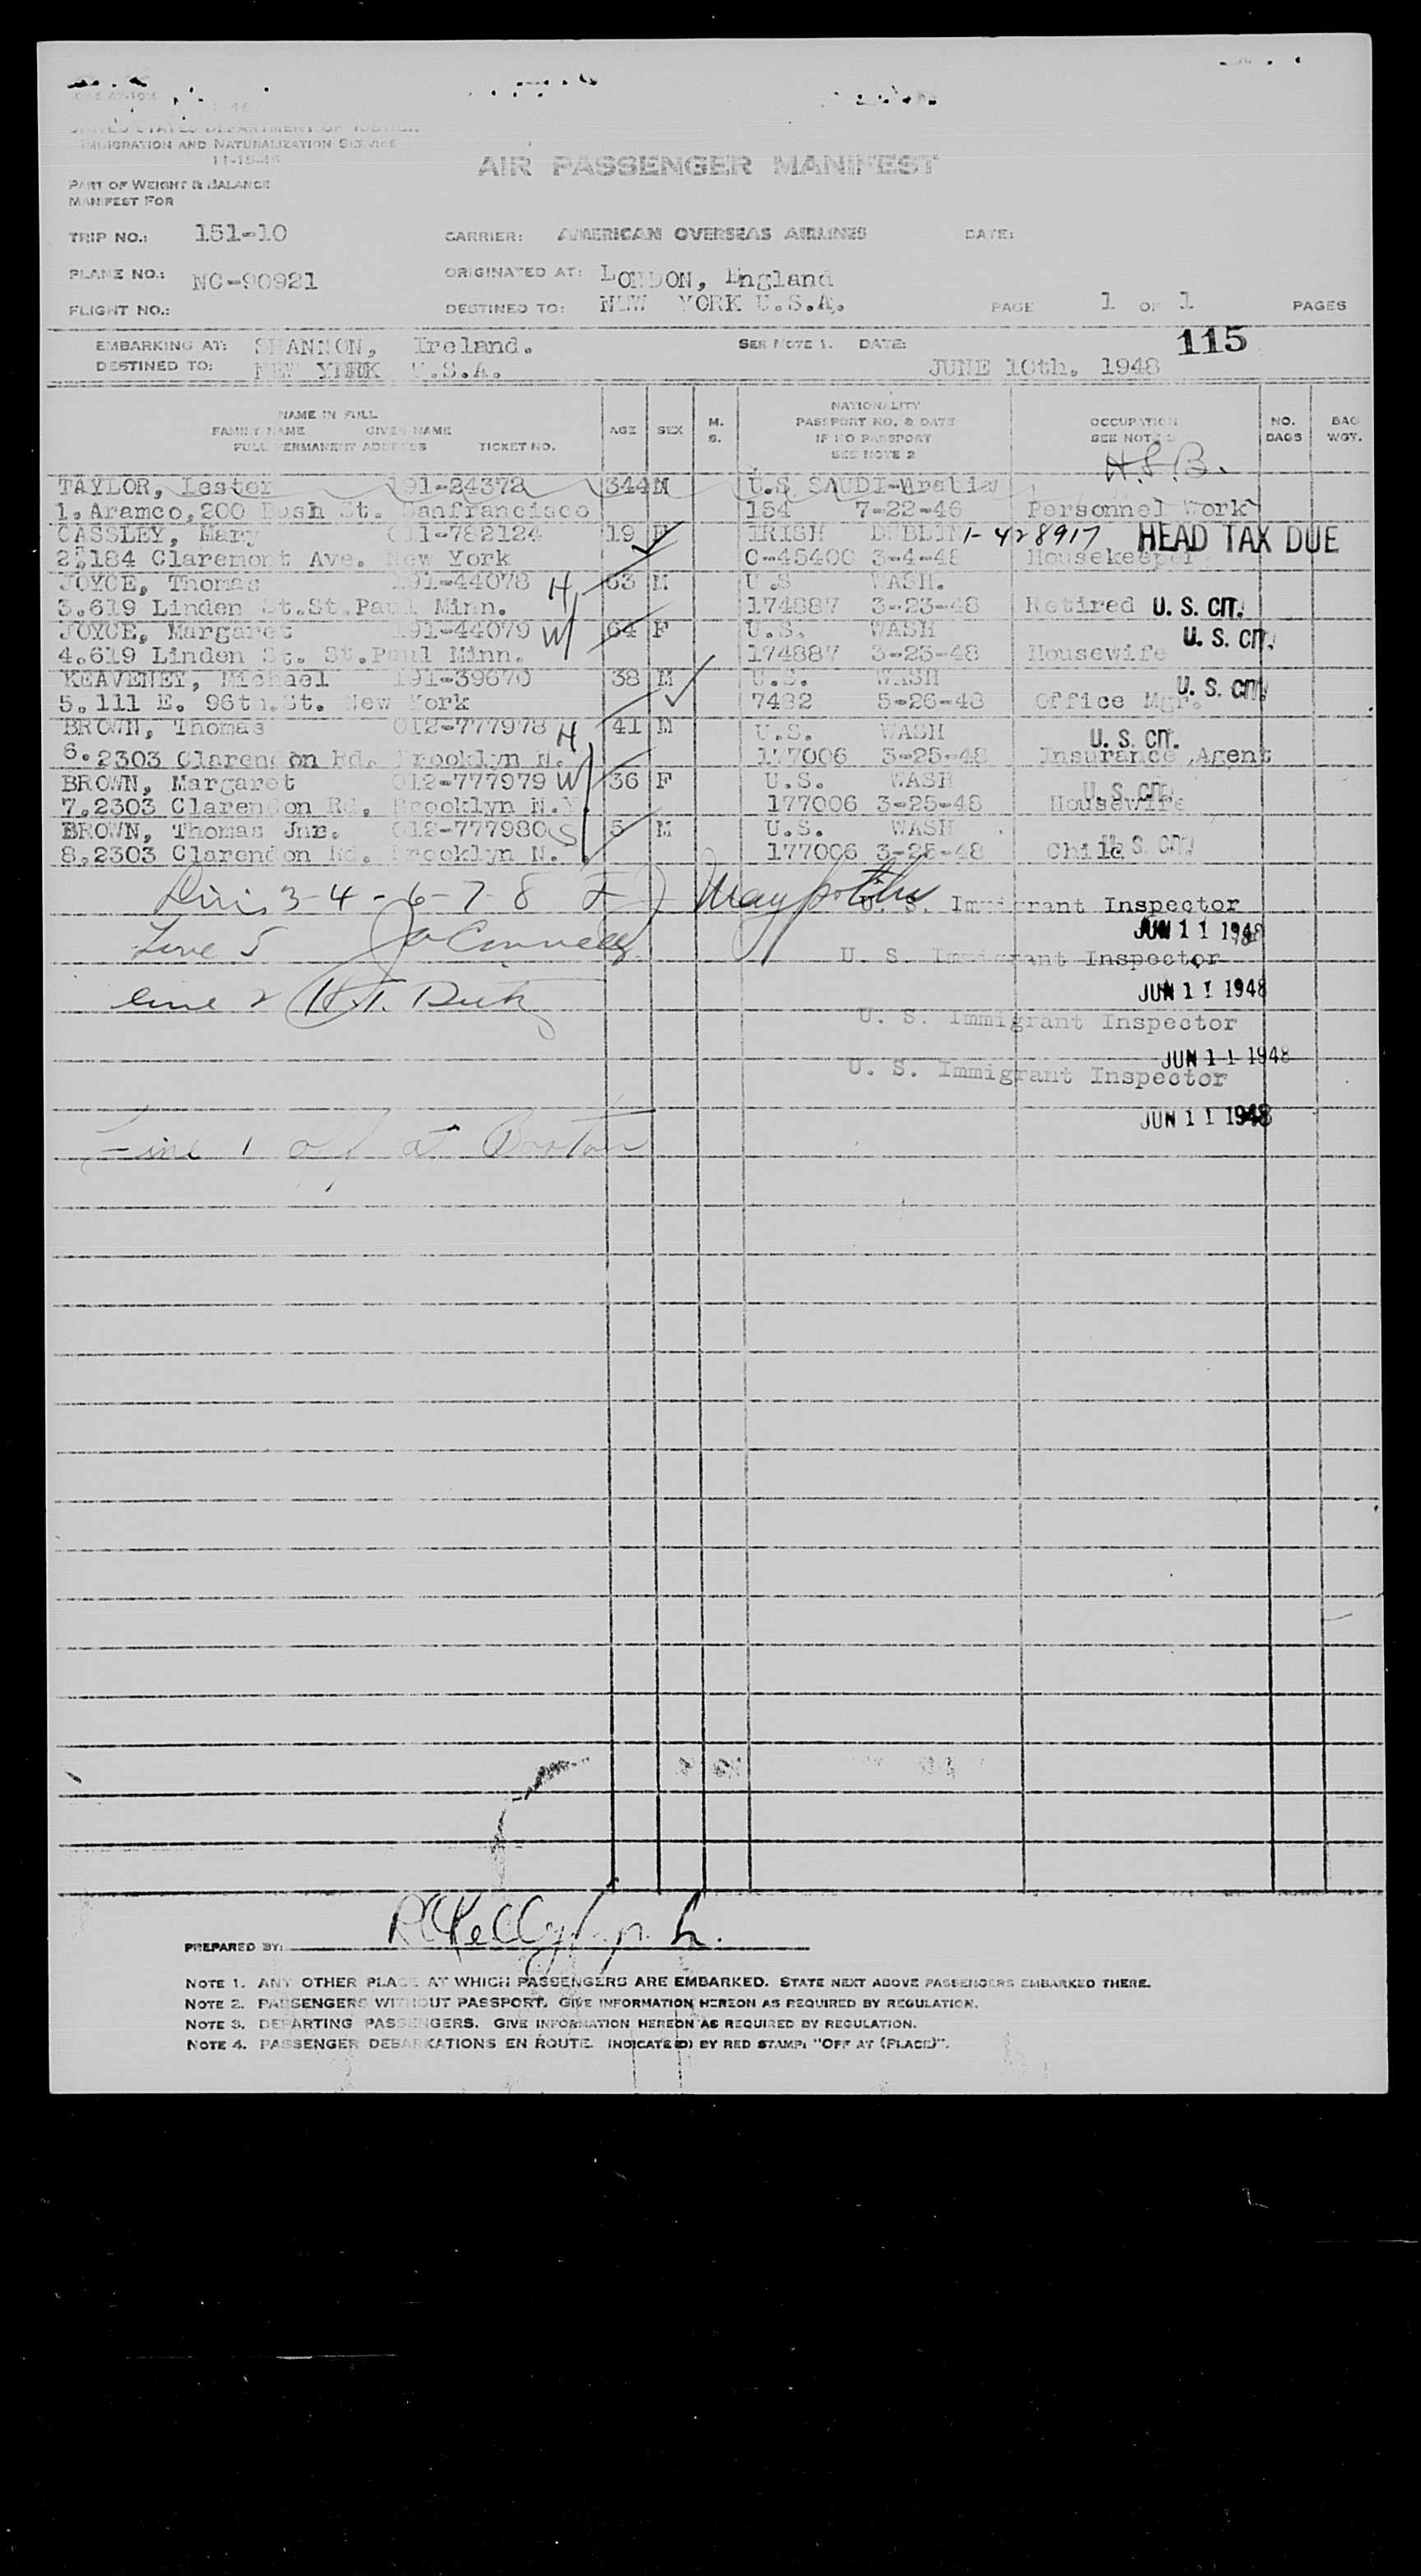 UNITED STATES DEPARTMENT OF JUSTICE
IMMIGRATION AND NATURALIZATION SERVICE
11-15-46
AIR PASSENGER MANIFEST
PART OF WEIGHT & BALANCE
MANIFEST FOR
TRIP NO.: 151-10 CARRIER: AMERICAN OVERSEAS AIRLINES DATE:
PLANE NO.: NC-90921 ORIGINATED AT: LONDON, England
FLIGHT NO.: DESTINED TO: NEW YORK U.S.A. PAGE 1 OF 1 PAGES
EMBARKING AT: SHANNON, Ireland. SEE NOTE 1. DATE: 115
DESTINED TO: NEW YORK U.S.A. JUNE 10th. 1948
NAME IN FULL
FAMILY NAME GIVEN NAME
FULL PERMANENT ADDRESS TICKET NO.
AGE SEX M. S.
NATIONALITY
PASSPORT NO. & DATE
IF NO PASSPORT
SEE NOTE 2
OCCUPATION
SEE NOTE 3
NO. BAGS
BAG WGT.
H.S.B.
TAYLOR, Lester 191-24372 344 M U.S. SAUDI-Arabia
1. Aramco, 200 Bush St. Sanfrancisco 154 7-22-46 Personnel Work
CASSLEY, Mary 011-782124 19 F IRISH DUBLIN 1-428917 HEAD TAX DUE
2. 184 Claremont Ave. New York C-45400 3-4-48 Housekeeper
JOYCE, Thomas 191-44078 H 63 M U.S. WASH.
3.619 Linden St. St.Paul Minn. 174887 3-23-48 Retired U. S. CIT.
JOYCE, Margaret 191-44079 W 64 F U.S. WASH U. S. CIT.
4.619 Linden St. St.Paul Minn. 174887 3-23-48 Housewife
KEAVENEY, Michael 191-39670 38 M U.S. WASH U. S. CIT.
5.111 E. 96th. St. New York 7482 5-26-48 Office Mgr.
BROWN, Thomas 012-777978 H 41 M U.S. WASH U. S. CIT.
6.2303 Clarendon Rd. Brooklyn N.Y. 177006 3-25-48 Insurance Agent
BROWN, Margaret 012-777979 W 36 F U.S. WASH U. S. CIT.
7.2303 Clarendon Rd, Brooklyn N.Y. 177006 3-25-48 Housewife
BROWN, Thomas Jnr. 012-777980 S 5 M U.S. WASH
8.2303 Clarendon Rd. Brooklyn N. 177006 3-25-48 Child U. S. CIT.
3-4-6-7-8 U. S. Immigrant Inspector
JUN 11 1948
Line 5 J O'Connell U. S. Immigrant Inspector
JUN 11 1948
Line 2 U. S. Immigrant Inspector
JUN 11 1948
U. S. Immigrant Inspector
JUN 11 1948
Line 1 off at Boston
PREPARED BY:
NOTE 1. ANY OTHER PLACE AT WHICH PASSENGERS ARE EMBARKED. STATE NEXT ABOVE PASSENGERS EMBARKED THERE.
NOTE 2. PASSENGERS WITHOUT PASSPORT. GIVE INFORMATION HEREON AS REQUIRED BY REGULATION.
NOTE 3. DEPARTING PASSENGERS. GIVE INFORMATION HEREON AS REQUIRED BY REGULATION.
NOTE 4. PASSENGER DEBARKATIONS EN ROUTE. INDICATE(D) BY RED STAMP: "OFF AT (PLACE)".